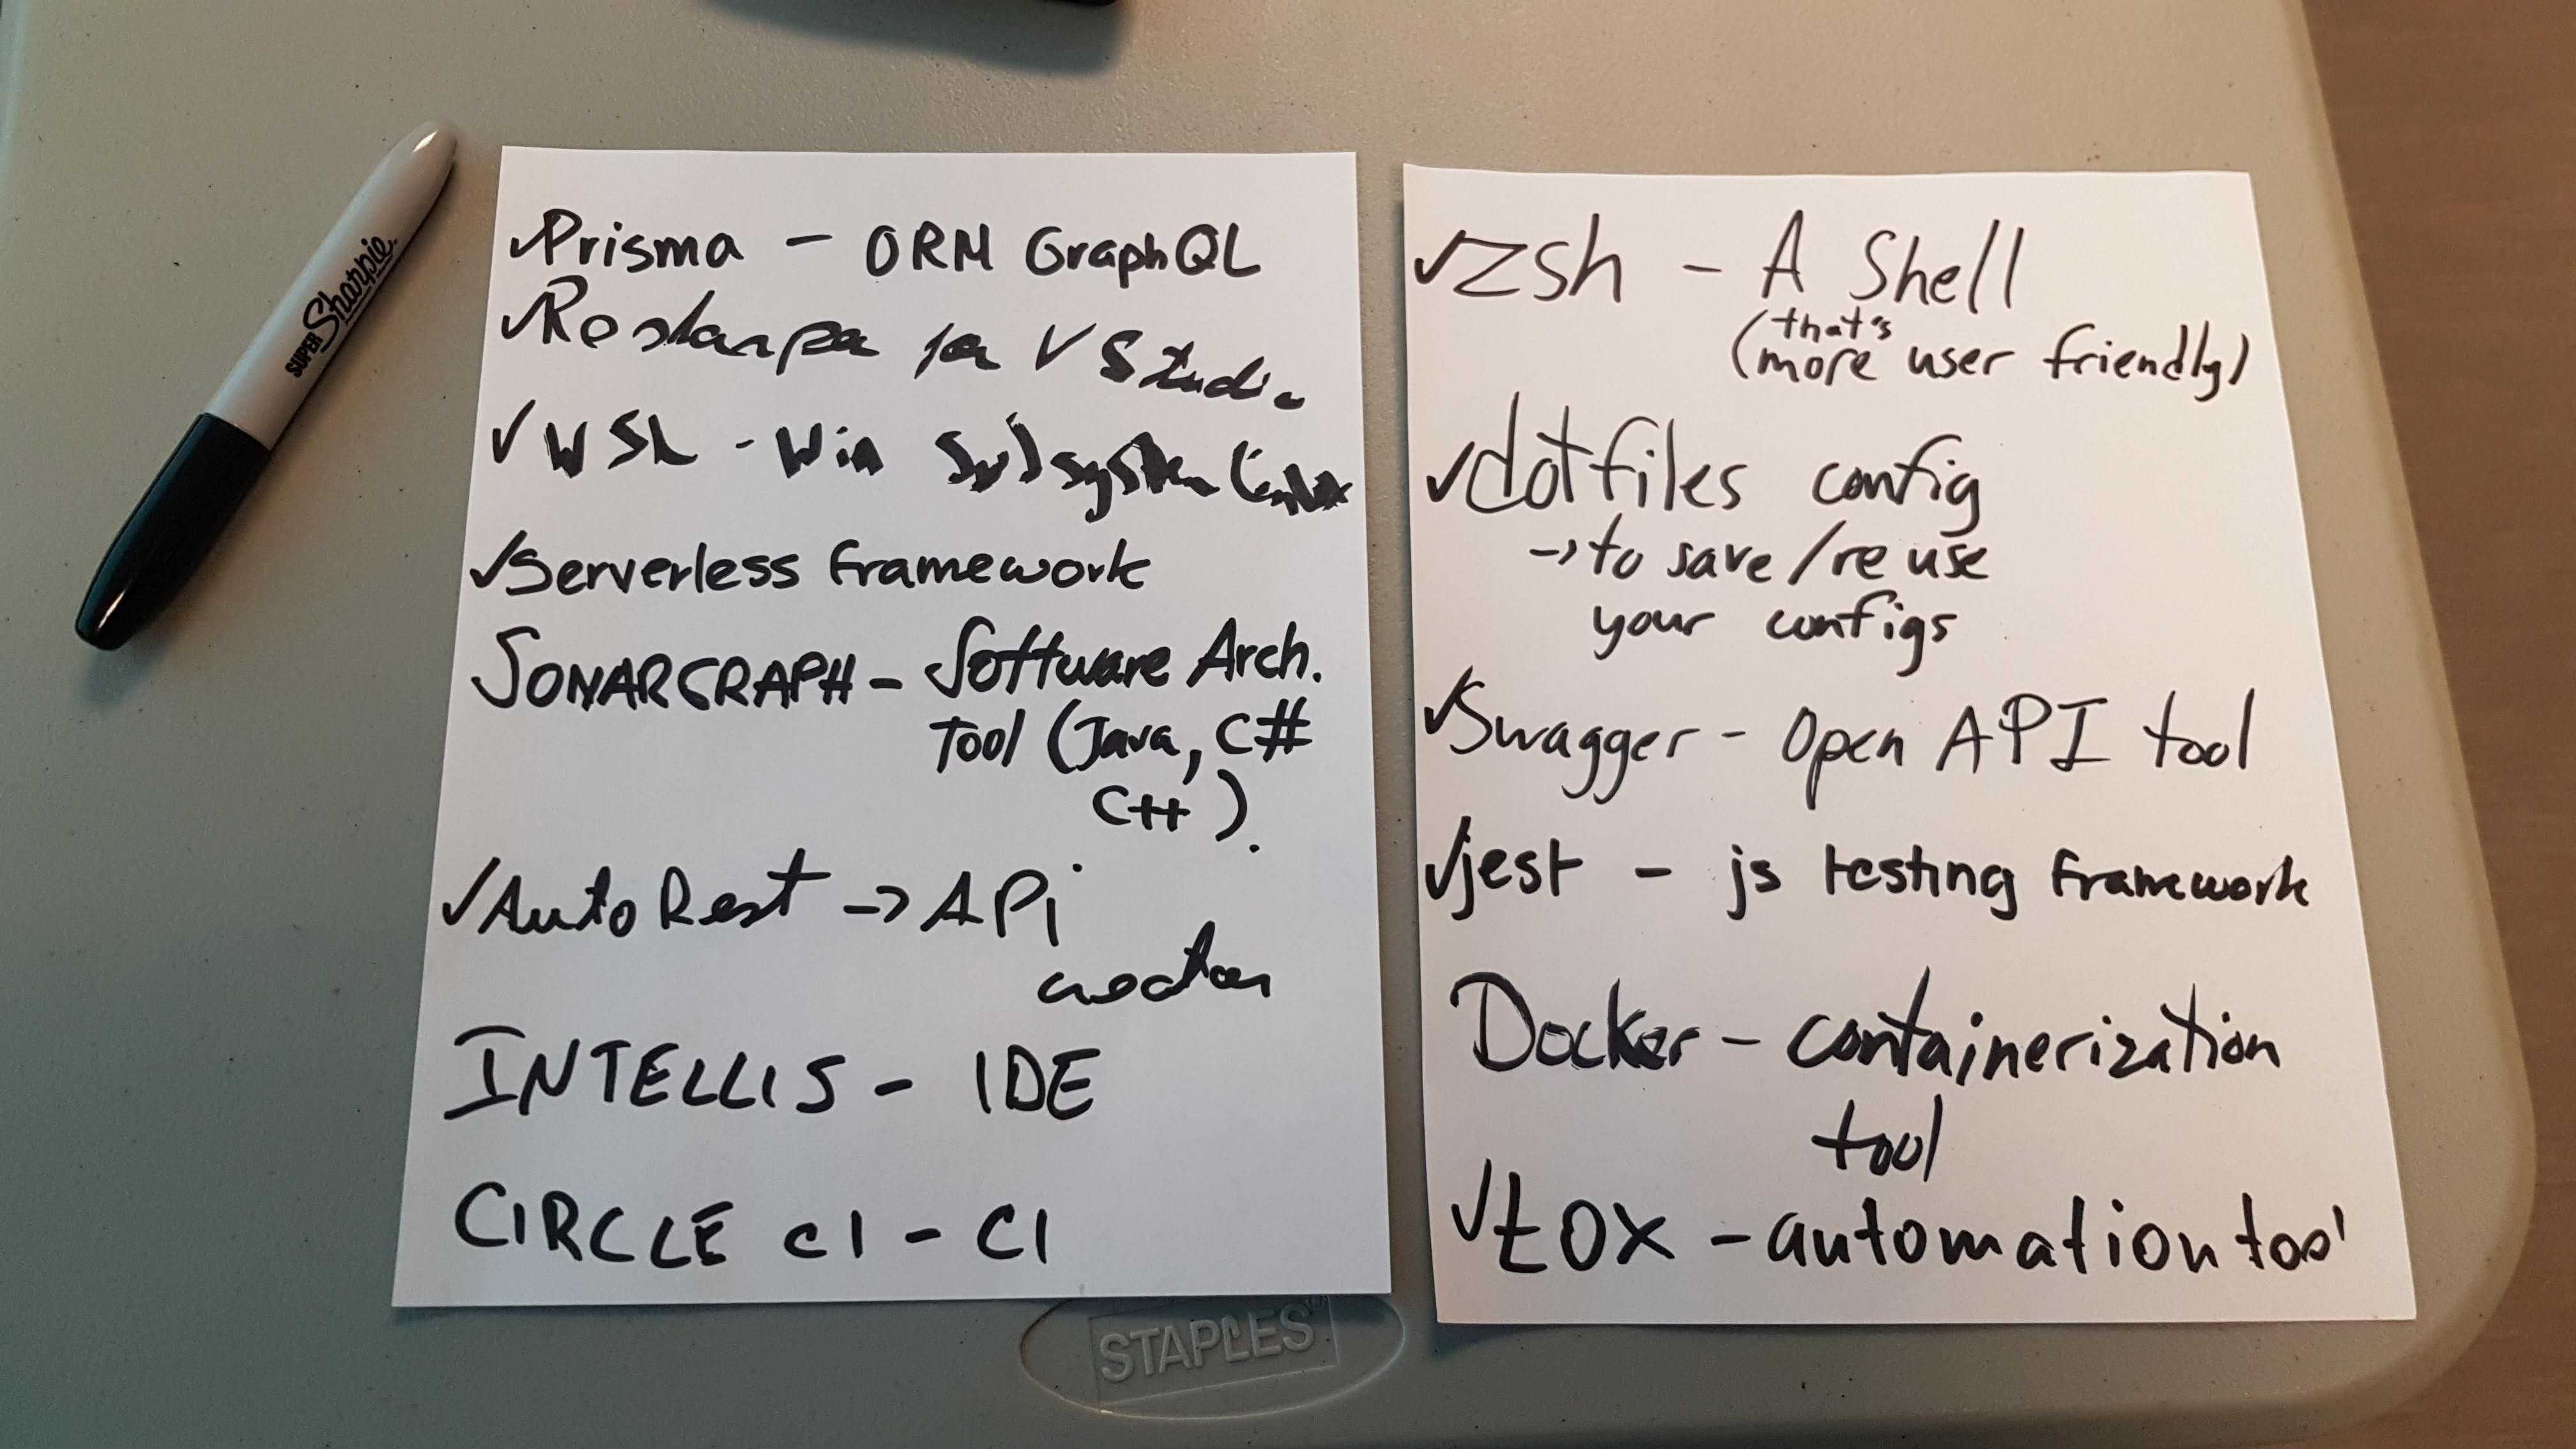 SUPER Sharpie
✓Prisma - ORM GraphQL
✓ for VStudio
✓WSL - Win Subsystem Linux
✓Serverless Framework
SONARGRAPH - Software Arch.
Tool (Java, C#
C++).
✓AutoRest -> APi
creation
INTELLIS - IDE
CIRCLE CI - CI
✓ZSh - A Shell
(that's
more user friendly)
✓dotfiles config
-> to save/re use
your configs
✓Swagger - Open API tool
✓jest - js testing framework
Docker - containerization
tool
✓tox - automation tool
STAPLES